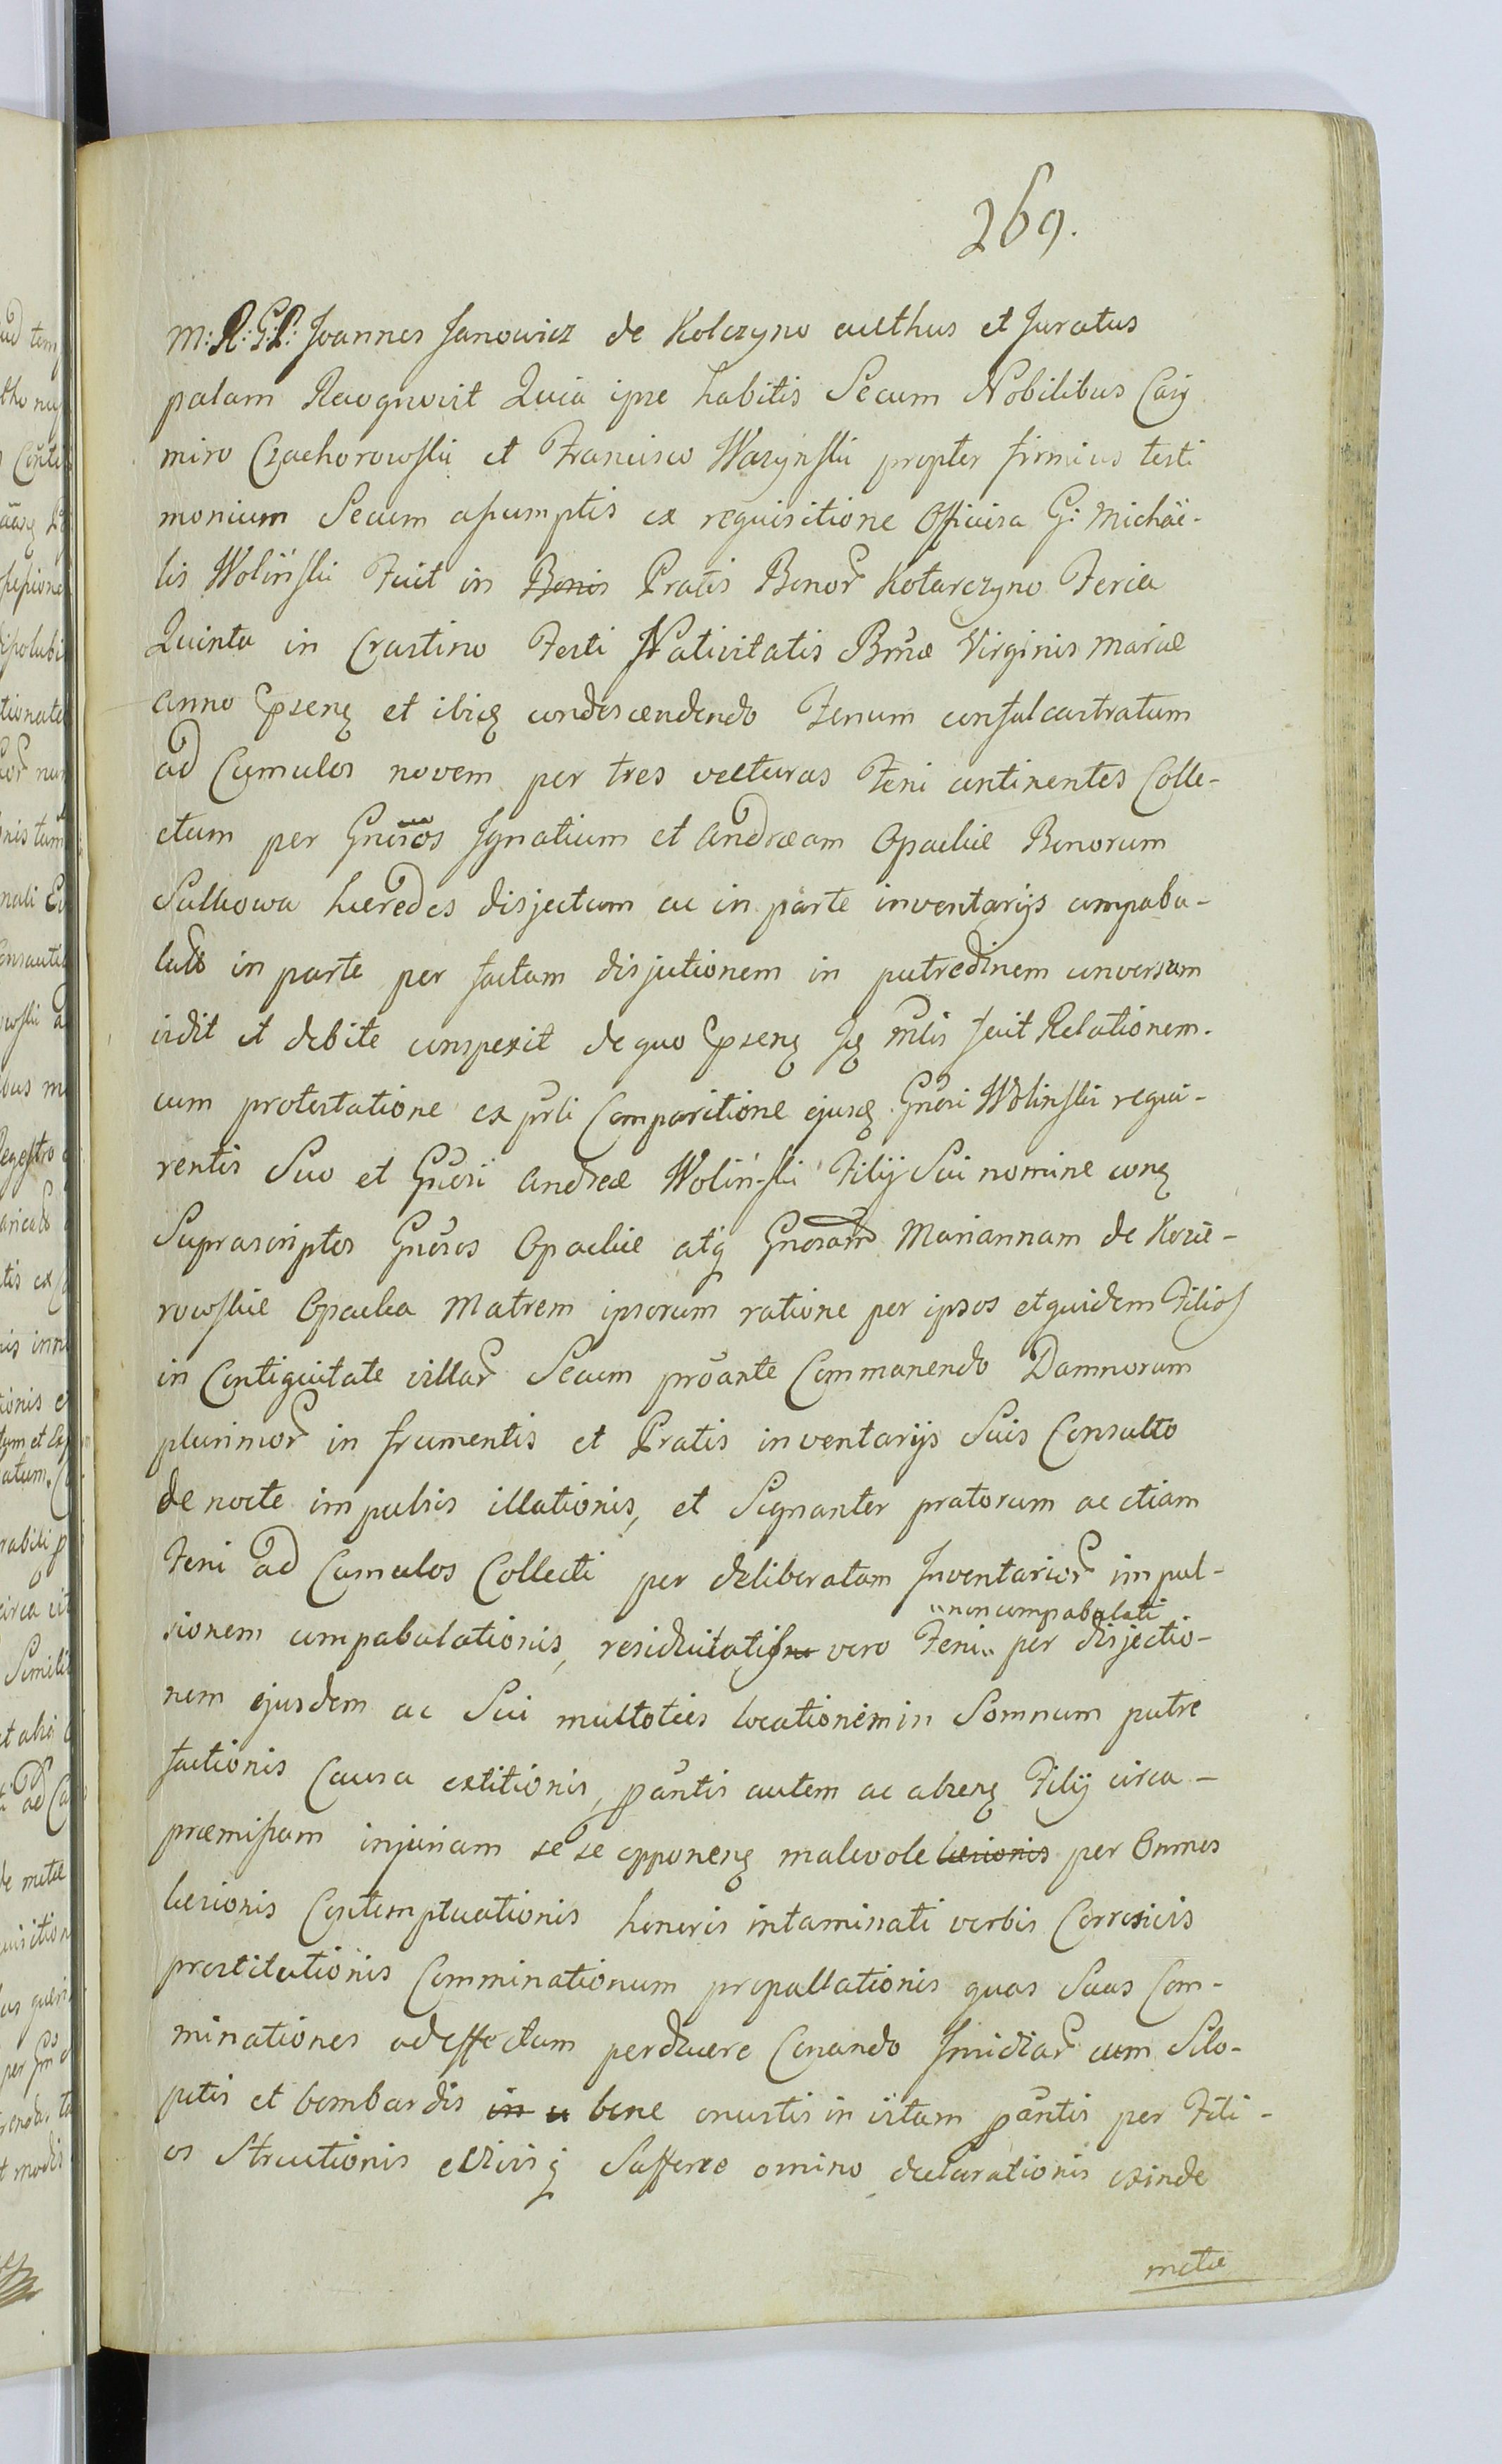 269.
M: R: G: P: Joannes Janowicz de Kolczyno authus et Juratus
palam Recognovit Quia ipse habitis Secum Nobilibus Casi
miro Czachorowski et Francisco Wazynski propter firmius testi
monium Secum assumptis ex requisitione Officiosa G: Michäe-
lis Wolinski Fuit in Bonis Pratis Bonor Kotarczyno Feria
Quinta in Crastino Festi Nativitatis Bmæ Virginis Mariæ
Anno pseng et ibiq condescendendo Fenum confalcastratum
ad Cumulos novem per tres vecturas Feni continentes Colle-
ctum per Gnosos Ignatium et Andræam Opackie Bonorum
Sulkowa hæredes disjectum ac in parte inventarijs compabu-
latt in parte per factam disjectionem in putredinem conversam
vidit et debite conspexit de quo pseng Jq mlis fecit Relationem.
cum protestatione ex prli Comparitione ejusq Gnosi Wolinski requi-
rentis Suo et Gnosi Andreæ Wolin-ski Filij Sui nomine conq
Suprascriptos Gnosos Opackie atq Gnosam Mariannam de Kozie-
rowskie Opacka Matrem ipsorum ratione per ipsos et quidem Filios
in Contiguitate villar Secum proante Commanendo Damnorum
plurimor in frumentis et Pratis inventarijs Suis Consulto
de nocte impulsis illationis, et Signanter pratorum ac etiam
Feni ad Cumulos Collecti per deliberatam Inventarior impul-
sionem compabulationis, residuitatis vero Feni „ per disjectio-
„ non compabulati
nem ejusdem ac Sui multoties locationem in Somnum putre
factionis Causa extitionis, pantis autem ac abseng Filij circa-
præmissam injuriam sese opponeng malevole læsionis per Omnes
læsionis Contemptuationis honoris intaminati verbis Corrosivis
prostitutionis Comminationum propallationis quas Suas Com-
minationes ad effectum perducere Conando Insidiar cum Sclo-
petis et bombardis in u bene onustis in vitam pantis per Fili-
os Structionis eVivisq Sufferre omino declarationis exinde
metæ